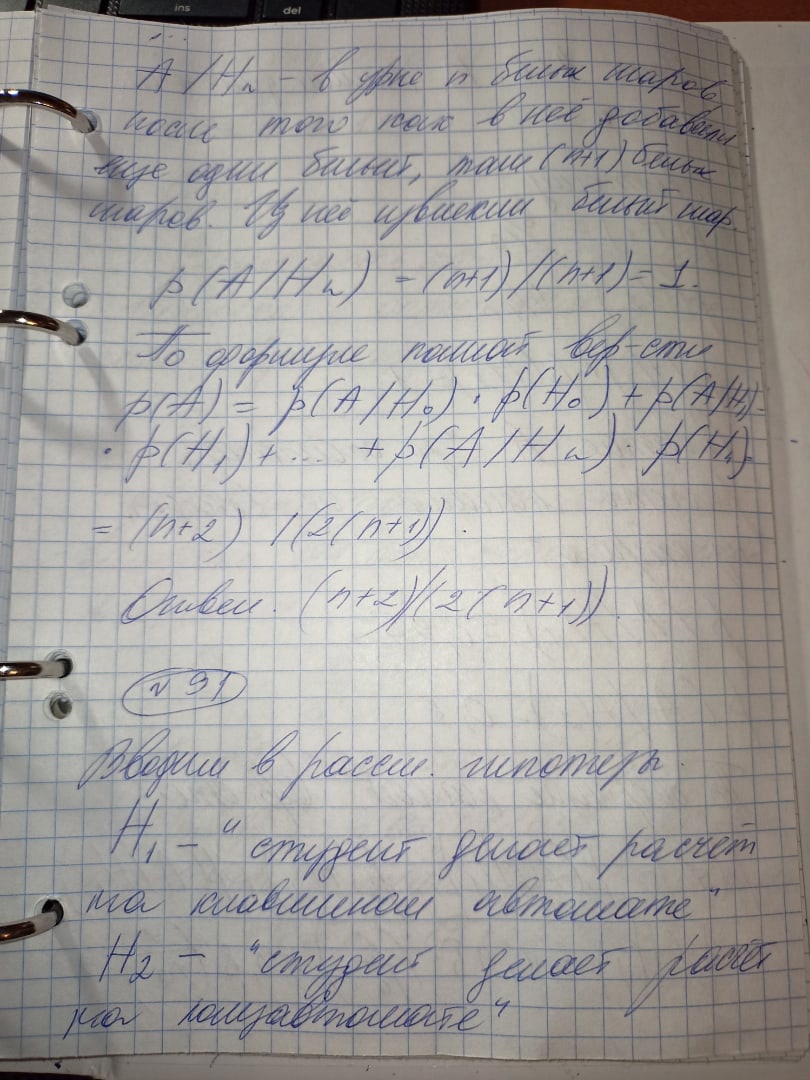 ins
del
...
A/Hₙ – в урне n белых шаров
после того как в неё добавили
еще один белый, там (n+1) белых
шаров. Из неё извлекли белый шар.
p(A/Hₙ) = (n+1)/(n+1) = 1.
По формуле полной вер-сти
p(A) = p(A/H₀) · p(H₀) + p(A/H₁) ·
· p(H₁) + ... + p(A/Hₙ) · p(Hₙ) =
= (n+2) / (2(n+1)).
Ответ. (n+2)/(2(n+1)).
№ 91
Вводим в рассм. гипотезы
H₁ – "студент делает расчёт
на клавишном автомате"
H₂ – "студент делает расчёт
на полуавтомате"